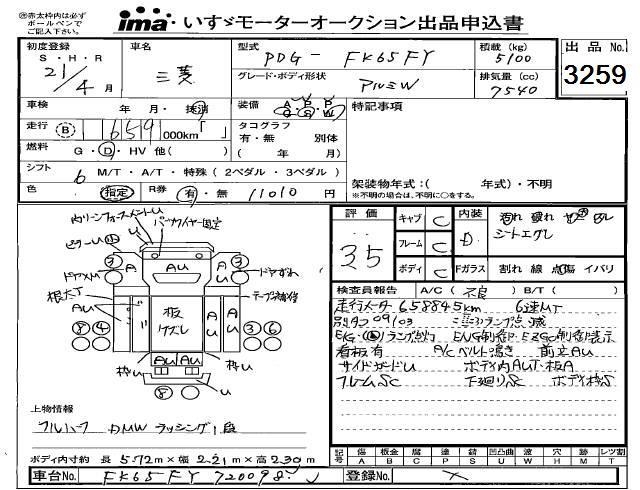 ㊟赤太枠内は必ず
ボールペンで
ご記入下さい。
ima いすゞモーターオークション出品申込書
初度登録 S・H・R 21/4 月
車名 三菱
型式 PDG- FK65FY
積載 (kg) 5100
出品 No. 3259
グレード・ボディ形状 アルミW
排気量 (cc) 7540
車検 年 月・抹消
装備 A P P
G S W
特記事項
走行 B 1 1659 000km「 」
タコグラフ
有・無 別体
( 年 月)
燃料 G・D・HV 他( )
シフト 6 M/T・A/T・特殊 (2ペダル・3ペダル)
色 指定 R券 有・無 11010 円
架装物年式:( 年式)・不明
※不明の場合は、不明に○をする。
評価 35
キャブ C
フレーム C
ボディ C
内装 D
シートエグレ
Fガラス 割れ 線 点傷 イバリ
検査員報告 A/C( 不良 ) B/T( )
走行メータ 658845km 6速MT
別タコ 09/03
看板有 A/Cベルト鳴き 前立AU
サイドガードU ボディ内AUT・板A
フレームSC 下廻りSC
内リーンフォースメントU
バックタイヤー固定
ピラーU
U
3 A AU A 3
ドアメU ドアずれ
根太T テープ補修
AU
板ケズレ
AU AU
8 4 3 6
AU AU
枠U 枠U
8 U
上物情報
フルハーフ DMW ラッシング1段
ボディ内寸約 長 5.72m×幅 2.21m×高 2.30m
記号 傷 A 板金 B 腐 C 塗 P 錆 S 凹凸曲 U 波 W 穴 H 跡 M レツ割 T
車台No. FK65FY 720098
登録No.